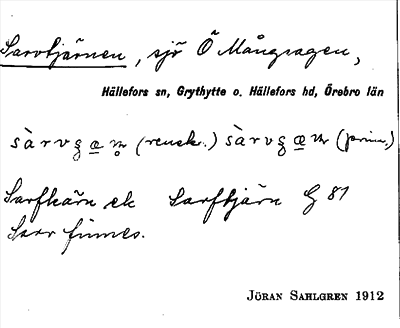 Sarvtjärnen, sjö Ö Mångsagen,
Hällefors sn, Grythytte o. Hällefors hd, Örebro län
sàrvʒæn̥ (renck.) sàrvʒæn (prim.)
Sarfkärn ek Sarftjärn G 81
Sarv finnes.
JÖRAN SAHLGREN 1912